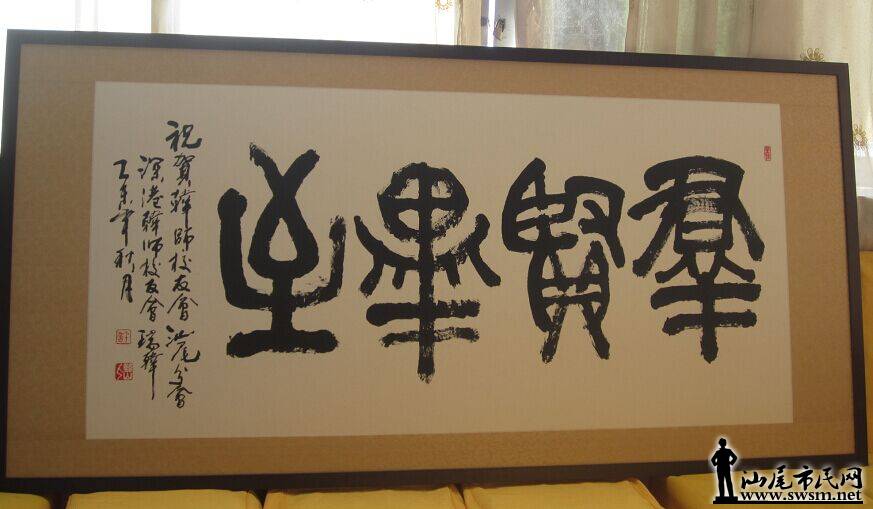 羣賢畢至
祝賀韓師校友會汕尾分會
深港韓師校友會
乙未年秋月
汕尾市民网
www.swsm.net